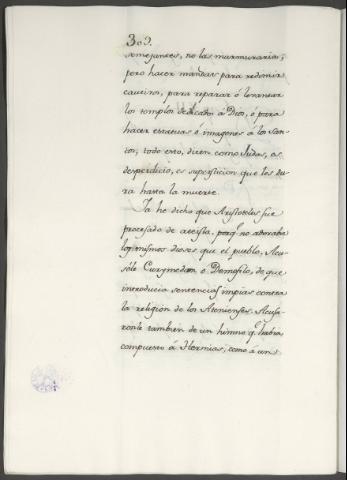 303.
semejantes, no las murmurarias,
pero hacer mandas para redimir
cautivos, para reparar ó levantar
los templos dedicados à Dios, ó para
hacer estatuas ó imagenes à los San-
tos; todo esto, dicen como Judas, es
desperdicio, es supersticion que les du-
ra hasta la muerte.
Ya he dicho que Aristoteles fue
procesado de ateista, porq.e no adoraba
los mismos dioses que el pueblo. Acu-
sóle Eurymedon o Demofilo, de que
introducia sentencias impias contra
la religion de los Atenienses. Acusa-
ronle tambien de un himno q.e habia
compuesto à Hermias, como à un